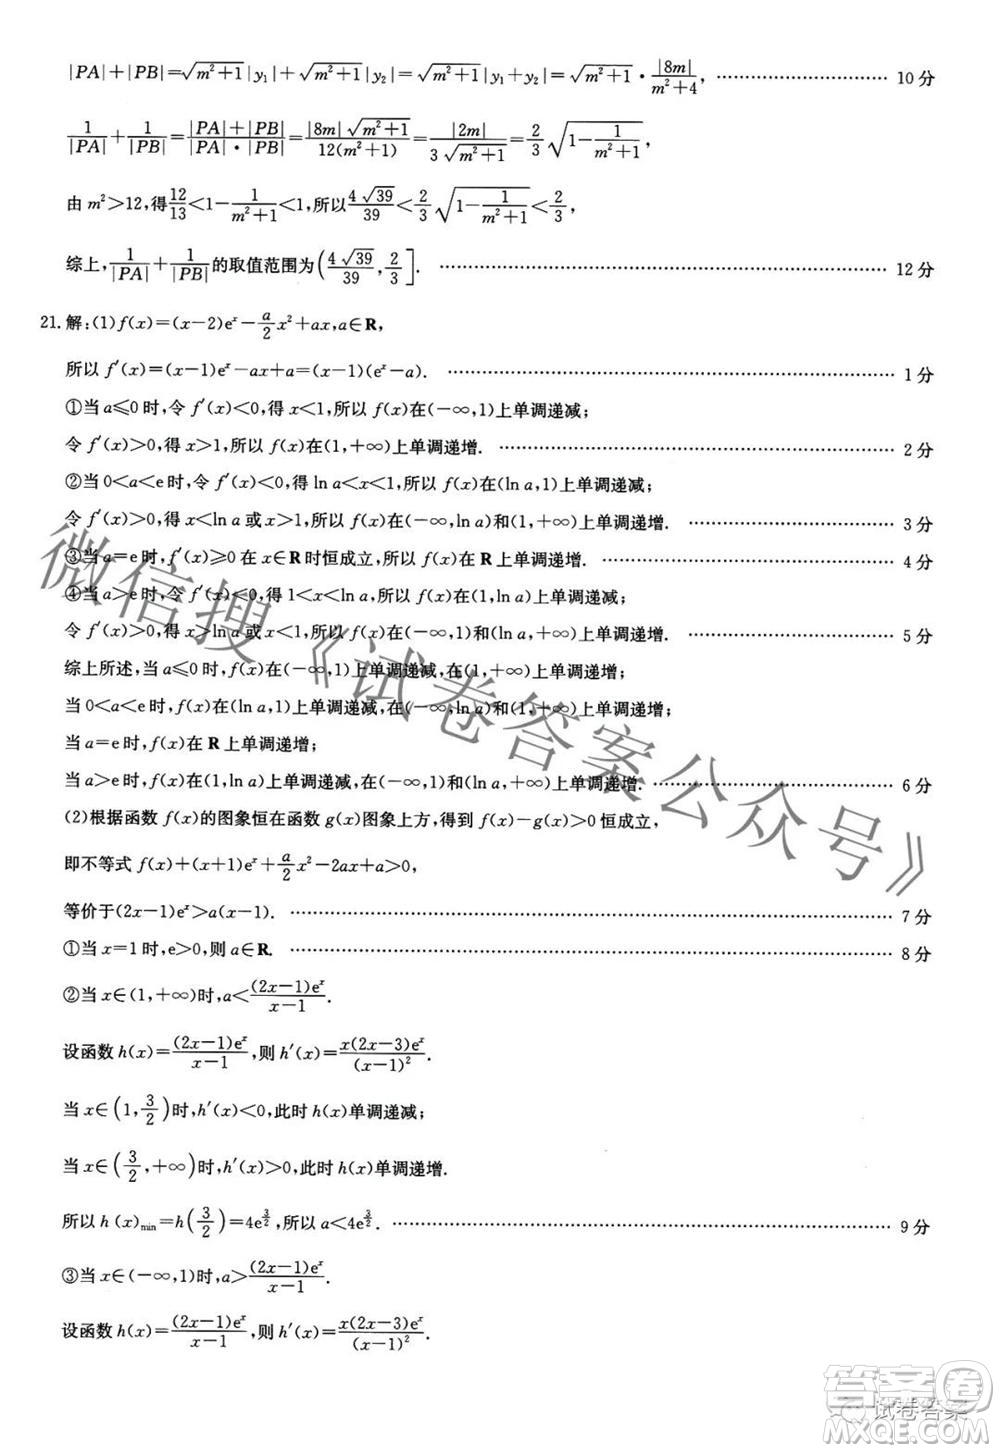 |PA|+|PB|=√(m²+1)|y₁|+√(m²+1)|y₂|=√(m²+1)|y₁+y₂|=√(m²+1)·|8m|/(m²+4), …… 10分
1/|PA|+1/|PB|=(|PA|+|PB|)/(|PA|·|PB|)=|8m|√(m²+1)/(12(m²+1))=|2m|/(3√(m²+1))=2/3√(1-1/(m²+1)),
由 m²>12,得12/13<1-1/(m²+1)<1,所以4√39/39<2/3√(1-1/(m²+1))<2/3,
综上,1/|PA|+1/|PB|的取值范围为(4√39/39,2/3]. …… 12分
21.解:(1)f(x)=(x-2)eˣ-a/2x²+ax,a∈R,
所以 f′(x)=(x-1)eˣ-ax+a=(x-1)(eˣ-a). …… 1分
①当 a≤0 时,令 f′(x)<0,得 x<1,所以 f(x)在(-∞,1)上单调递减;
令 f′(x)>0,得 x>1,所以 f(x)在(1,+∞)上单调递增. …… 2分
②当 0<a<e 时,令 f′(x)<0,得 ln a<x<1,所以 f(x)在(ln a,1)上单调递减;
令 f′(x)>0,得 x<ln a 或 x>1,所以 f(x)在(-∞,ln a)和(1,+∞)上单调递增. …… 3分
③当 a=e 时,f′(x)≥0 在 x∈R 时恒成立,所以 f(x)在 R 上单调递增. …… 4分
④当 a>e 时,令 f′(x)<0,得 1<x<ln a,所以 f(x)在(1,ln a)上单调递减;
令 f′(x)>0,得 x>ln a 或 x<1,所以 f(x)在(-∞,1)和(ln a,+∞)上单调递增. …… 5分
综上所述,当 a≤0 时,f(x)在(-∞,1)上单调递减,在(1,+∞)上单调递增;
当 0<a<e 时,f(x)在(ln a,1)上单调递减,在(-∞,ln a)和(1,+∞)上单调递增;
当 a=e 时,f(x)在 R 上单调递增;
当 a>e 时,f(x)在(1,ln a)上单调递减,在(-∞,1)和(ln a,+∞)上单调递增. …… 6分
(2)根据函数 f(x)的图象恒在函数 g(x)图象上方,得到 f(x)-g(x)>0 恒成立,
即不等式 f(x)+(x+1)eˣ+a/2x²-2ax+a>0,
等价于(2x-1)eˣ>a(x-1). …… 7分
①当 x=1 时,e>0,则 a∈R. …… 8分
②当 x∈(1,+∞)时,a<(2x-1)eˣ/(x-1).
设函数 h(x)=(2x-1)eˣ/(x-1),则 h′(x)=x(2x-3)eˣ/(x-1)².
当 x∈(1,3/2)时,h′(x)<0,此时 h(x)单调递减;
当 x∈(3/2,+∞)时,h′(x)>0,此时 h(x)单调递增.
所以 h(x)min=h(3/2)=4e^(3/2),所以 a<4e^(3/2). …… 9分
③当 x∈(-∞,1)时,a>(2x-1)eˣ/(x-1).
设函数 h(x)=(2x-1)eˣ/(x-1),则 h′(x)=x(2x-3)eˣ/(x-1)².
微信搜《试卷答案公众号》
试卷答案
答案圈
MXQE.COM